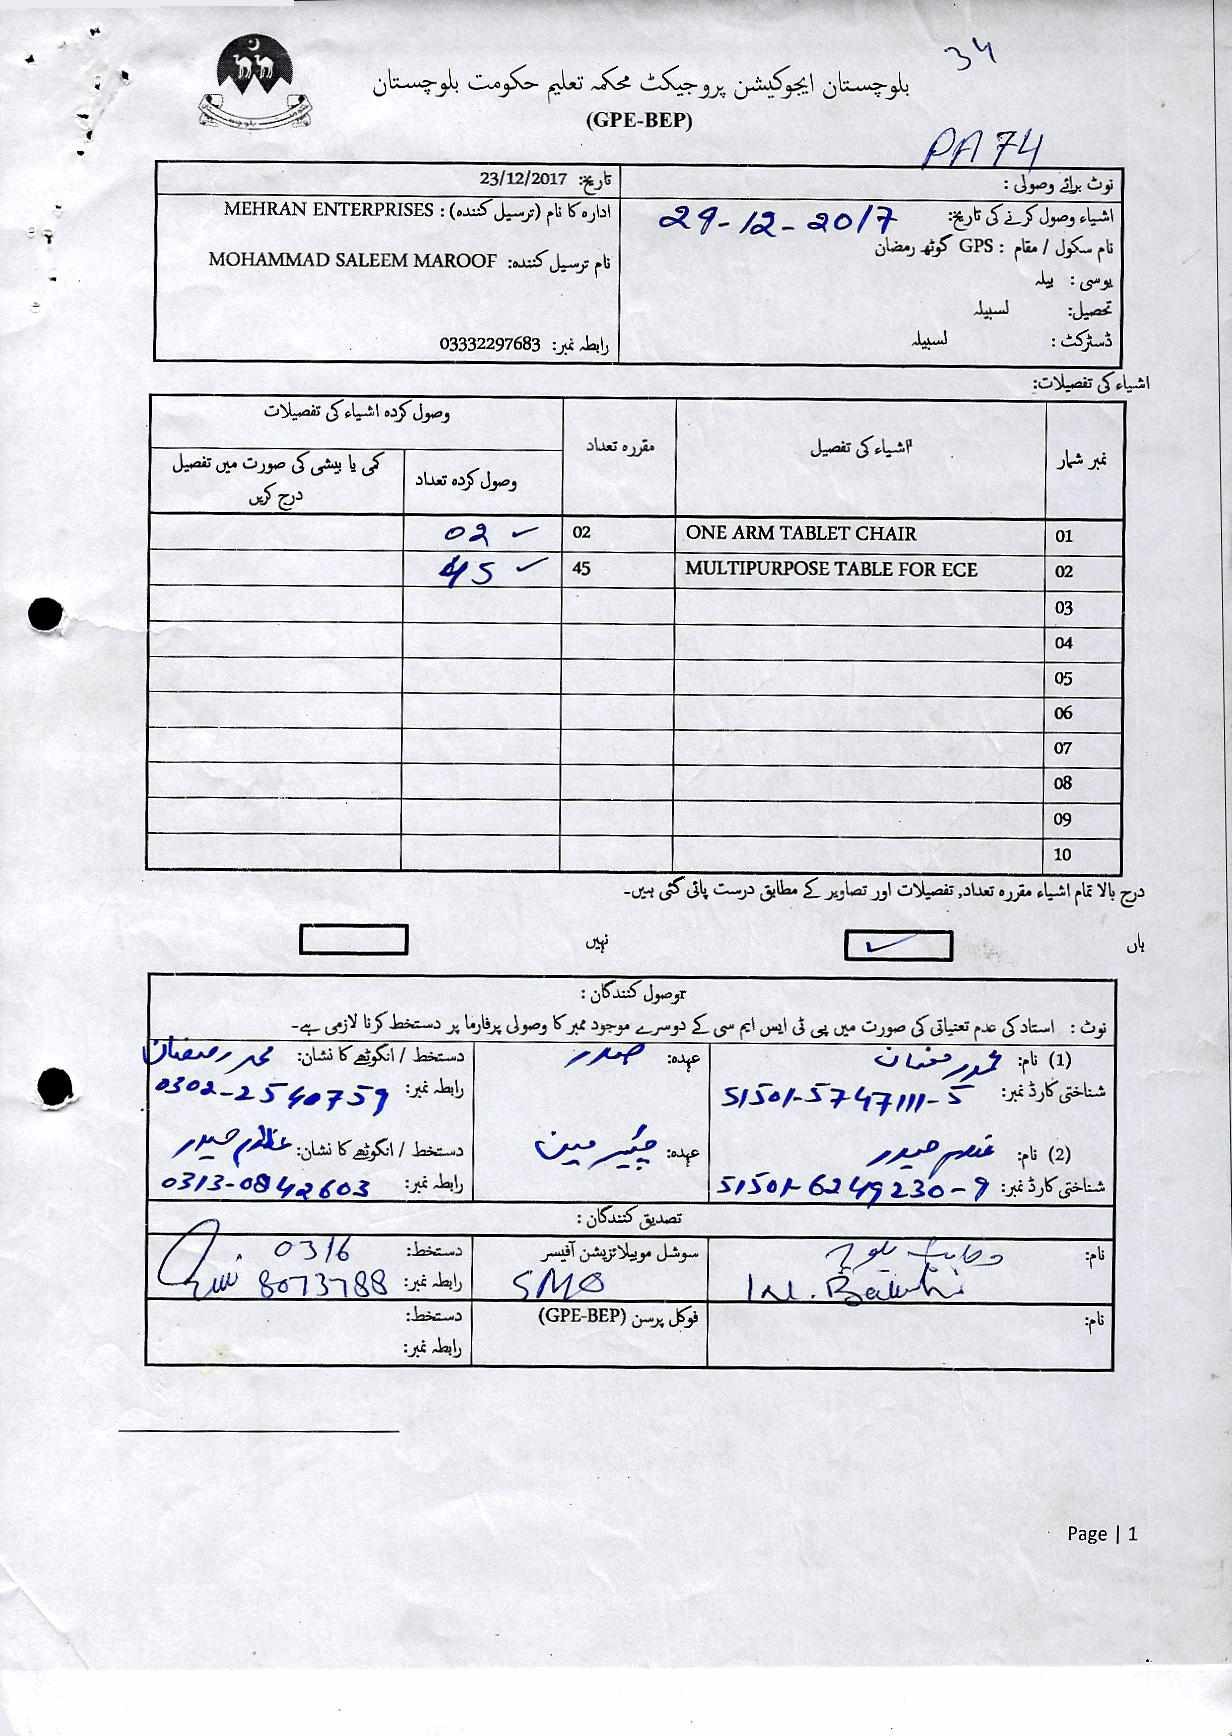 34
بلوچستان ایجوکیشن پروجیکٹ محکمہ تعلیم حکومت بلوچستان
(GPE-BEP)
PA 74
نوٹ برائے وصولی :
تاریخ: 23/12/2017
اشیاء وصول کرنے کی تاریخ: 29-12-2017
ادارہ کا نام (ترسیل کنندہ) : MEHRAN ENTERPRISES
نام سکول / مقام : GPS گوٹھ رمضان
نام ترسیل کنندہ: MOHAMMAD SALEEM MAROOF
یوسی : بیلہ
تحصیل: لسبیلہ
ڈسٹرکٹ : لسبیلہ
رابطہ نمبر: 03332297683
اشیاء کی تفصیلات:
نمبر شمار اشیاء کی تفصیل مقررہ تعداد وصول کردہ اشیاء کی تفصیلات
وصول کردہ تعداد کمی یا بیشی کی صورت میں تفصیل درج کریں
01 ONE ARM TABLET CHAIR 02 02 ✓
02 MULTIPURPOSE TABLE FOR ECE 45 45 ✓
03
04
05
06
07
08
09
10
درج بالا تمام اشیاء مقررہ تعداد, تفصیلات اور تصاویر کے مطابق درست پائی گئی ہیں۔
ہاں ✓ نہیں
وصول کنندگان :
نوٹ : استاد کی عدم تعیناتی کی صورت میں پی ٹی ایس ایم سی کے دوسرے موجود ممبر کا وصولی پرفارما پر دستخط کرنا لازمی ہے۔
(1) نام: محمد رمضان عہدہ: صدر دستخط / انگوٹھے کا نشان: محمد رمضان
شناختی کارڈ نمبر: 51501-5747111-5 رابطہ نمبر: 0302-2540759
(2) نام: غلام حیدر عہدہ: چیئرمین دستخط / انگوٹھے کا نشان: غلام حیدر
شناختی کارڈ نمبر: 51501-6249230-9 رابطہ نمبر: 0313-0842603
تصدیق کنندگان :
نام: بلوچ سوشل موبیلائزیشن آفیسر دستخط: 0316
SMO رابطہ نمبر: 8073788
نام: فوکل پرسن (GPE-BEP) دستخط:
رابطہ نمبر:
Page | 1